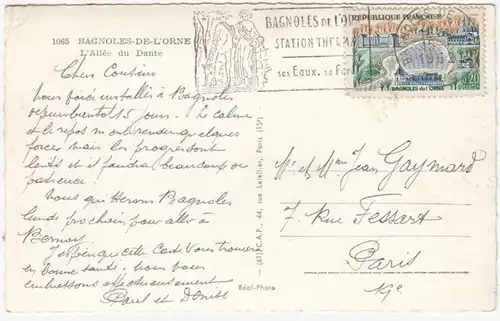 1065 BAGNOLES-DE-L'ORNE
L'Allée du Dante
BAGNOLES DE L'OR
STATION THERMA
ses Eaux. sa For
REPUBLIQUE FRANÇAISE
0,20
BAGNOLES de L'ORNE
Chers Cousins
nous installés à Bagnoles
15 jours. Le calme
et le repos m'ont rendu quelques
forces mais les progrès sont
lents et il faudra beaucoup de
patience.
Nous quitterons Bagnoles
lundi prochain pour aller à
Bernay
que cette Carte Vous trouvera
en bonne santé. Nous vous
embrassons affectueusement
Paul et Denise
(61) C.A.P., 44, rue Letellier, Paris (15e)
Réal-Photo
Mr et Mme Jean Gaymard
7 Rue Fessart
Paris
19e